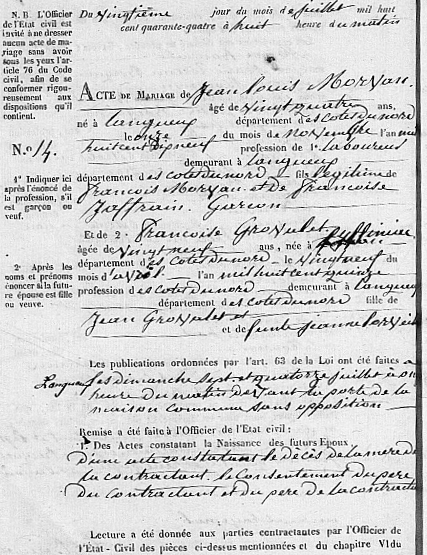 N. B. L'Officier
de l'Etat civil est
invité à ne dresser
aucun acte de ma-
riage sans avoir
sous les yeux l'ar-
ticle 76 du Code
civil, afin de se
conformer rigou-
reusement aux
dispositions qu'il
contient.
N.o 14.
1o Indiquer ici
après l'énoncé de
la profession, s'il
est garçon ou
veuf.
2o Après les
noms et prénoms
énoncer si la fu-
ture épouse est fille
ou veuve.
Du vingtième jour du mois de juillet mil huit
cent quarante-quatre à huit heure du matin
ACTE DE MARIAGE de Jean Louis Morvan
âgé de vingt quatre ans,
né à Langueux département des Cotes du nord
le onze du mois de novembre l'an mil
huit cent dix neuf profession de 1o laboureur
demeurant à Langueux
département des Cotes du nord fils légitime de
François Morvan et de Françoise
Jaffrain. Garçon
Et de 2o Françoise Grovalet
âgée de vingt neuf ans, née à
département des Cotes du nord le vingt neuf du
mois d'avril l'an mil huit cent quinze
profession des Cotes du nord demeurant à Langueux
département des Cotes du nord fille de
Jean Grovalet
et de feunte Jeanne
Les publications ordonnées par l'art. 63 de la Loi ont été faites a
Langueux les dimanche sept et quatorze juillet à
heure du matin devant la porte de la
maison commune sans opposition
Remise a été faite à l'Officier de l'Etat civil :
1o Des Actes constatant la Naissance des futurs Epoux,
d'un acte constatant le décès de la mere de
la contractant. le Consentement du pere
du contractant et du pere de la contracta
Lecture a été donnée aux parties contractantes par l'Officier de
l'Etat-Civil des pièces ci-dessus mentionnées et du chapitre VI du